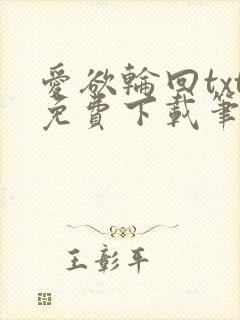 愛欲輪回txt
免費下載筆
王彰平